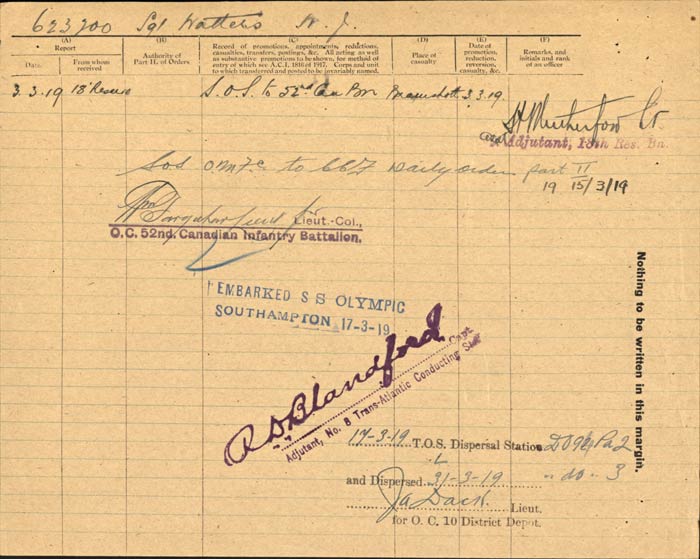 623200 Sgt Watters W. J.
(A) (B) (C) (D) (E) (F)
Report
Date. From whom received
Authority of Part II. of Orders
Record of promotions, appointments, reductions, casualties, transfers, postings, &c. All acting as well as substantive promotions to be shown, for method of entry of which see A.C.I. 1816 of 1917. Corps and unit to which transferred and posted to be invariably named.
Place of casualty
Date of promotion, reduction, reversion, casualty, &c.
Remarks, and initials and rank of an officer
3.3.19 18 Reserve S.O.S. to 52nd Can Bn Bramshott 3.3.19
Adjutant, 18th Res. Bn.
Sos O.M.F.C. to CEF Daily Order Part II
19 15/3/19
Lieut.-Col.,
O.C. 52nd. Canadian Infantry Battalion.
EMBARKED S S OLYMPIC
SOUTHAMPTON 17-3-19
R D Blandford Capt
Adjutant, No. 8 Trans-Atlantic Conducting Staff
17-3-19 T.O.S. Dispersal Station
and Dispersed 31-3-19 " do - 3
Lieut.
for O. C. 10 District Depot.
Nothing to be written in this margin.